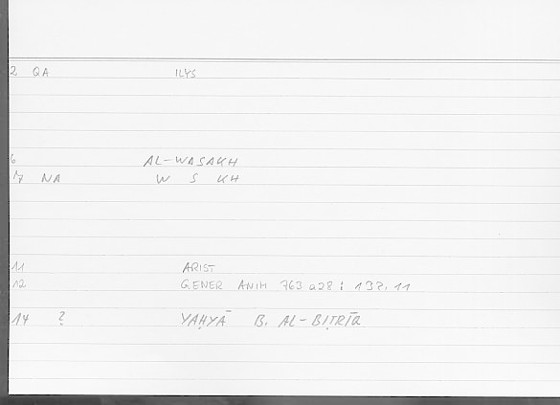 2 QA ILYS
6 AL-WASAKH
7 NA W S KH
11 ARIST
12 GENER ANIM 763 a28 : 137.11
14 ? YAḤYĀ B. AL-BIṬRĪQ